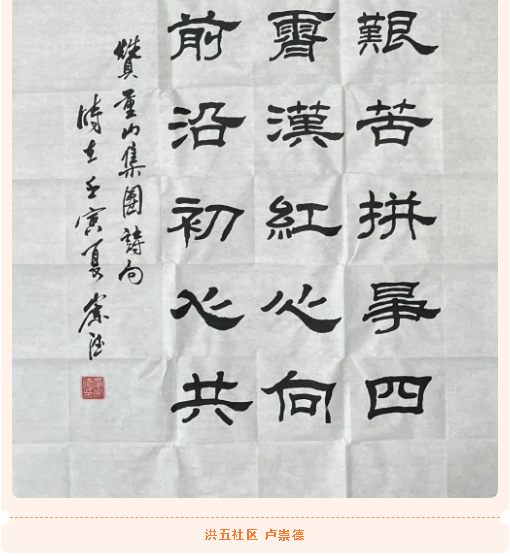 艱苦拼四
霄漢紅心向
前沿初心共
重山集團詩句
時在壬寅夏 崇德
洪五社区 卢崇德